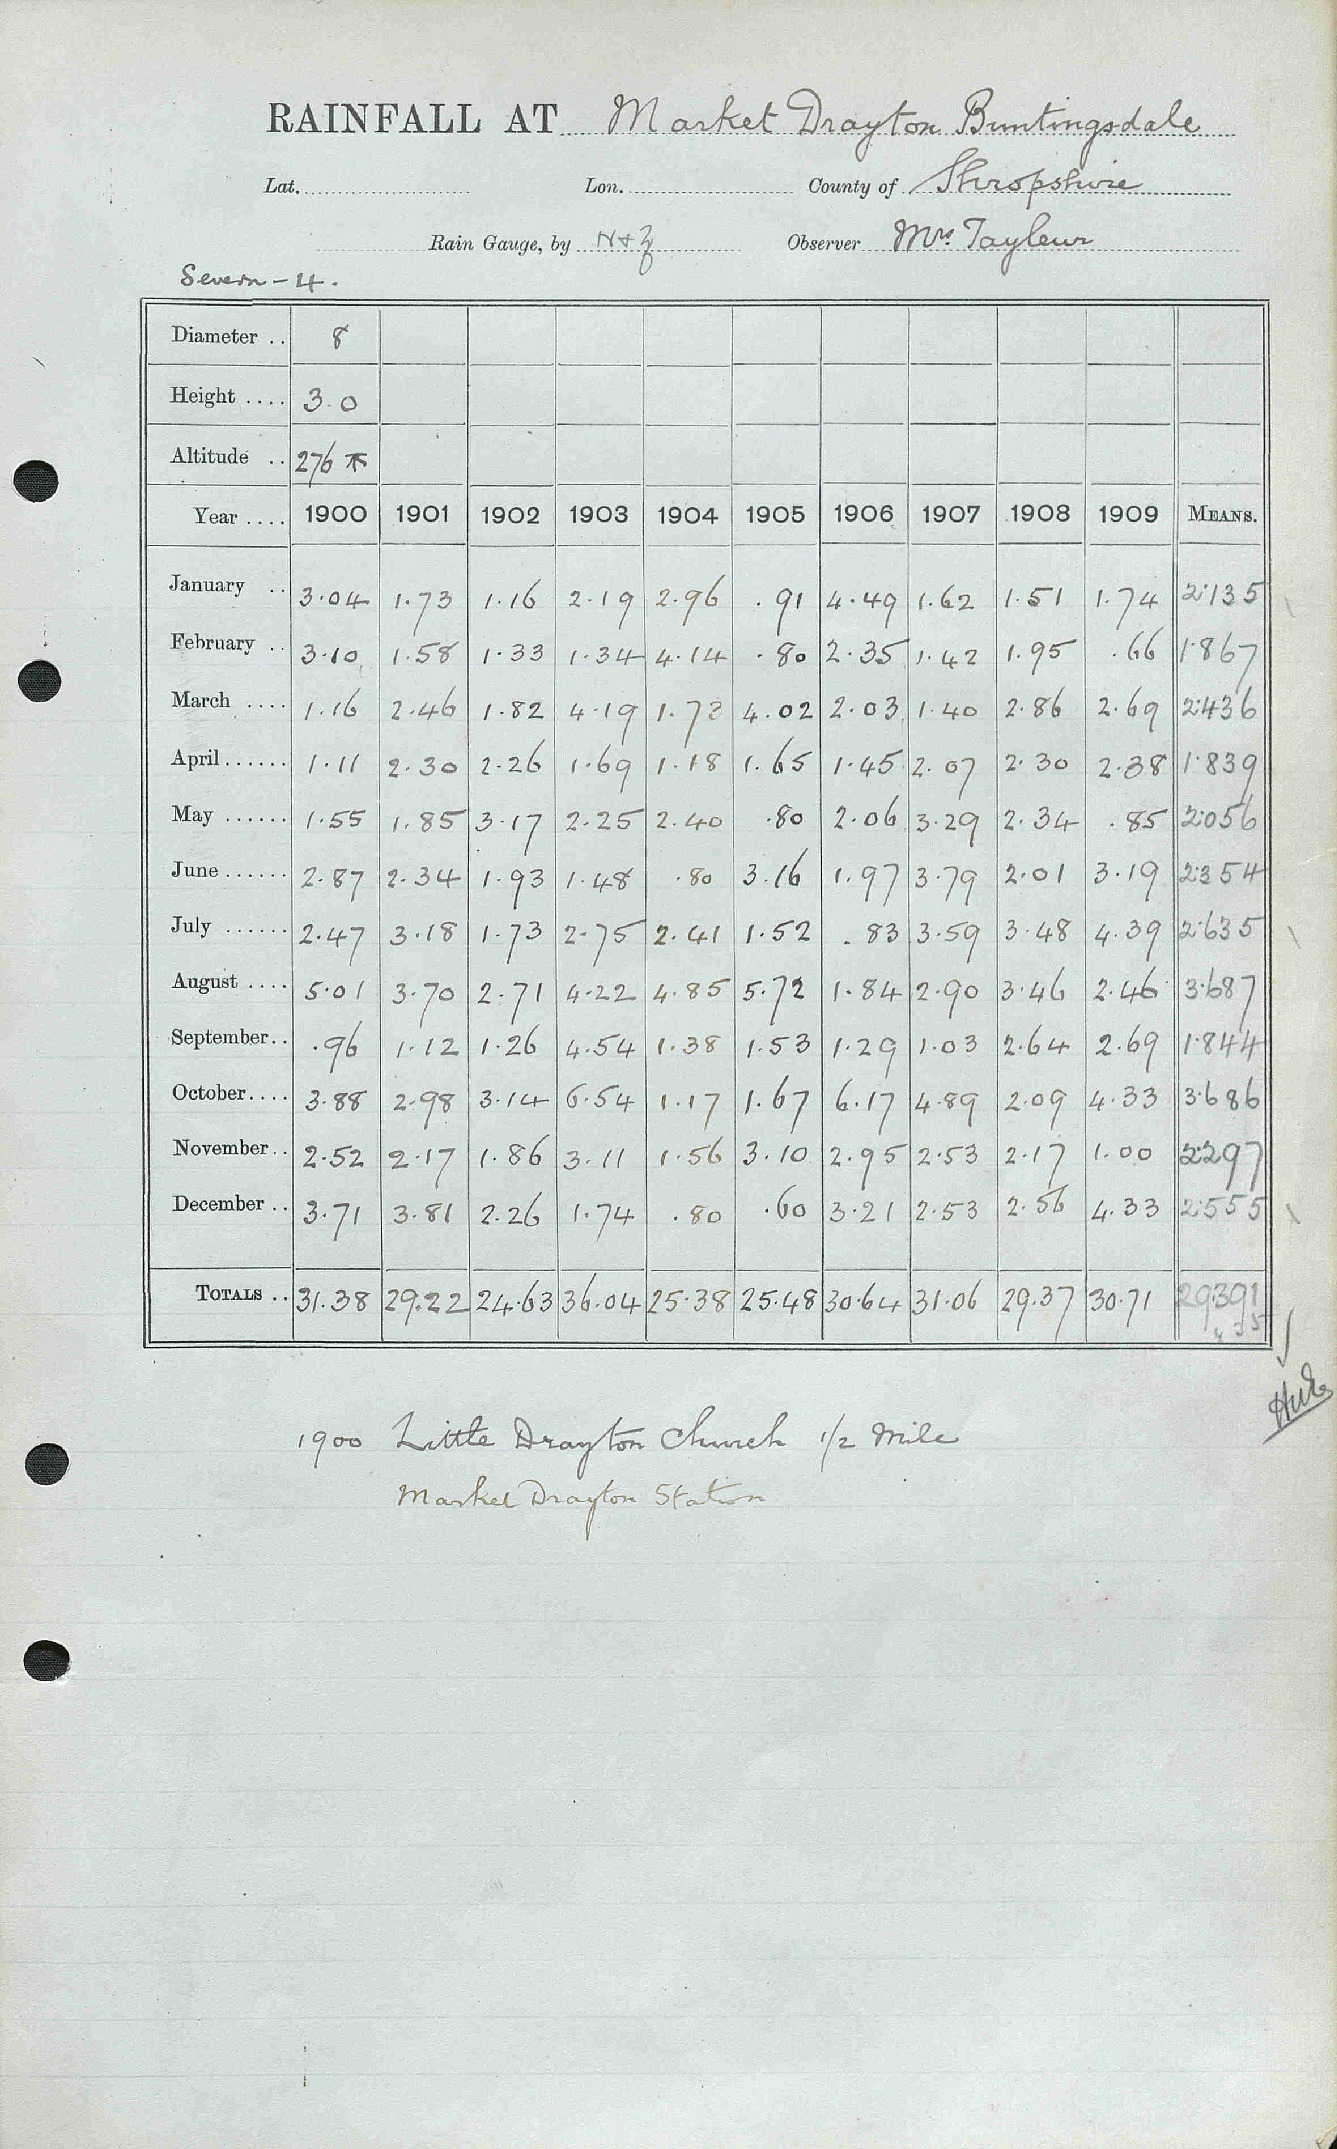 RAINFALL AT Market Drayton Buntingsdale
Lat. Lon. County of Shropshire
Rain Gauge, by N+Z Observer Mrs Tayleur
Severn - 4.
Diameter .. 8
Height .... 3.0
Altitude .. 276
Year .... 1900 1901 1902 1903 1904 1905 1906 1907 1908 1909 MEANS.
January .. 3.04 1.73 1.16 2.19 2.96 .91 4.49 1.62 1.51 1.74 2.135
February .. 3.10 1.58 1.33 1.34 4.14 .80 2.35 1.42 1.95 .66 1.867
March .... 1.16 2.46 1.82 4.19 1.73 4.02 2.03 1.40 2.86 2.69 2.436
April ...... 1.11 2.30 2.26 1.69 1.18 1.65 1.45 2.07 2.30 2.38 1.839
May ...... 1.55 1.85 3.17 2.25 2.40 .80 2.06 3.29 2.34 .85 2.056
June ...... 2.87 2.34 1.93 1.48 .80 3.16 1.97 3.79 2.01 3.19 2.354
July ...... 2.47 3.18 1.73 2.75 2.41 1.52 .83 3.59 3.48 4.39 2.635
August .... 5.01 3.70 2.71 4.22 4.85 5.72 1.84 2.90 3.46 2.46 3.687
September .. .96 1.12 1.26 4.54 1.38 1.53 1.29 1.03 2.64 2.69 1.844
October .... 3.88 2.98 3.14 6.54 1.17 1.67 6.17 4.89 2.09 4.33 3.686
November .. 2.52 2.17 1.86 3.11 1.56 3.10 2.95 2.53 2.17 1.00 2.297
December .. 3.71 3.81 2.26 1.74 .80 .60 3.21 2.53 2.56 4.33 2.555
TOTALS .. 31.38 29.22 24.63 36.04 25.38 25.48 30.64 31.06 29.37 30.71 29.391
1900 Little Drayton Church 1/2 Mile
Market Drayton Station